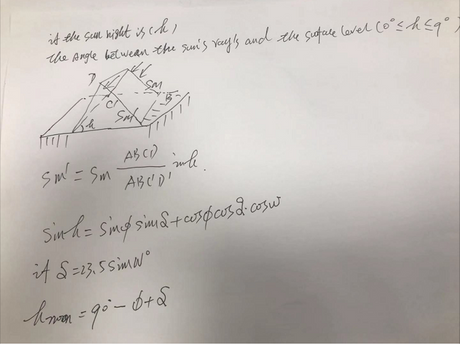 if the sun hight is (h)
the Angle between the sun's ray's and the surface level (0°≤h≤9°)
D
C'
Sm
B
Sm'
h
Sm' = Sm ABCD / ABC'D' sinh.
sinh = sinϕ sinδ + cosϕ cosδ. cosw
if δ = 23.5 sin N°
h noon = 90° - ϕ + δ